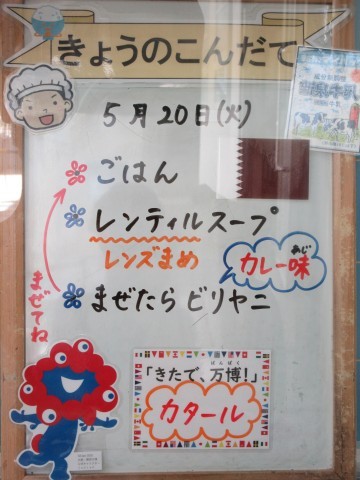 きょうのこんだて
5月20日(火)
ごはん
レンティルスープ
レンズまめ
カレー味
あじ
まぜたらビリヤニ
まぜてね
「きたで、万博!」
ばんぱく
カタール